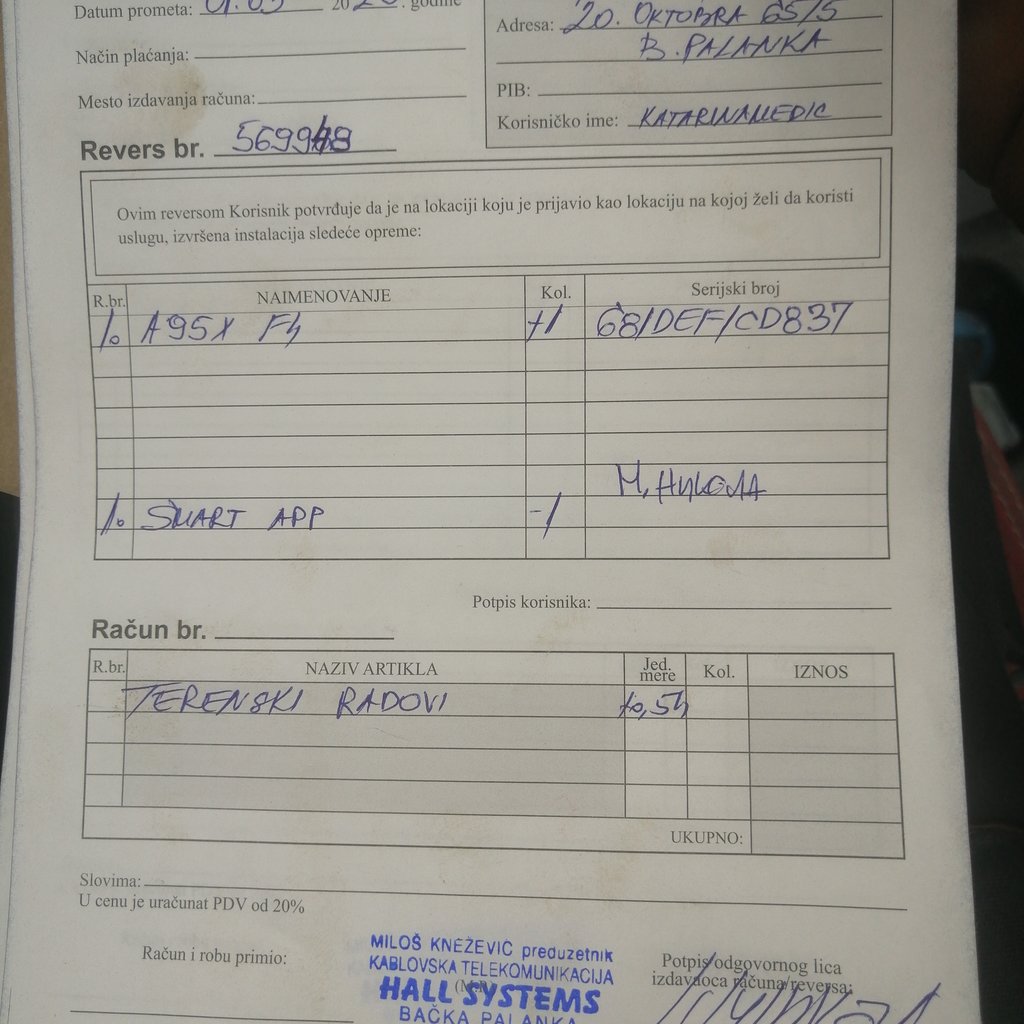 Datum prometa: 01.03 2020. godine
Adresa: 20. OKTOBRA 65/5
B. PALANKA
Način plaćanja:
PIB:
Mesto izdavanja računa:
Korisničko ime: KATARINAMEDIC
Revers br.
Ovim reversom Korisnik potvrđuje da je na lokaciji koju je prijavio kao lokaciju na kojoj želi da koristi
uslugu, izvršena instalacija sledeće opreme:
R.br. NAIMENOVANJE Kol. Serijski broj
1. A95X F4 +1 681DEF1CD837
М. Никола
1. SMART APP -1
Potpis korisnika:
Račun br.
R.br. NAZIV ARTIKLA Jed. mere Kol. IZNOS
TERENSKI RADOVI
UKUPNO:
Slovima:
U cenu je uračunat PDV od 20%
Račun i robu primio:
MILOŠ KNEŽEVIĆ preduzetnik
KABLOVSKA TELEKOMUNIKACIJA
HALL SYSTEMS
BAČKA PALANKA
(M.P.)
Potpis odgovornog lica
izdavaoca računa/reversa: